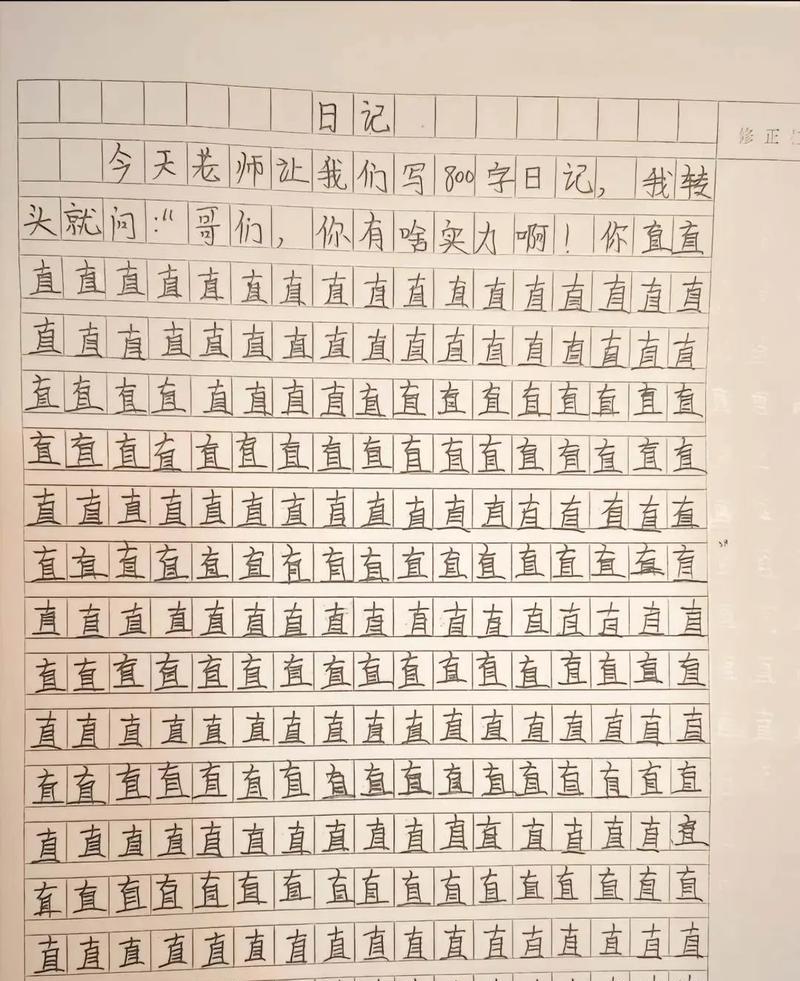 日记
修正
今天老师让我们写800字日记，我转
头就问：“哥们，你有啥实力啊！你直直
直直直直直直直直直直直直直直直直直
直直直直直直直直直直直直直直直直直
直直直直直直直直直直直直直直直直直
直直直直直直直直直直直直直直直直直
直直直直直直直直直直直直直直直直直
直直直直直直直直直直直直直直直直直
直直直直直直直直直直直直直直直直直
直直直直直直直直直直直直直直直直直
直直直直直直直直直直直直直直直直直
直直直直直直直直直直直直直直直直直
直直直直直直直直直直直直直直直直直
直直直直直直直直直直直直直直直直直
直直直直直直直直直直直直直直直直直